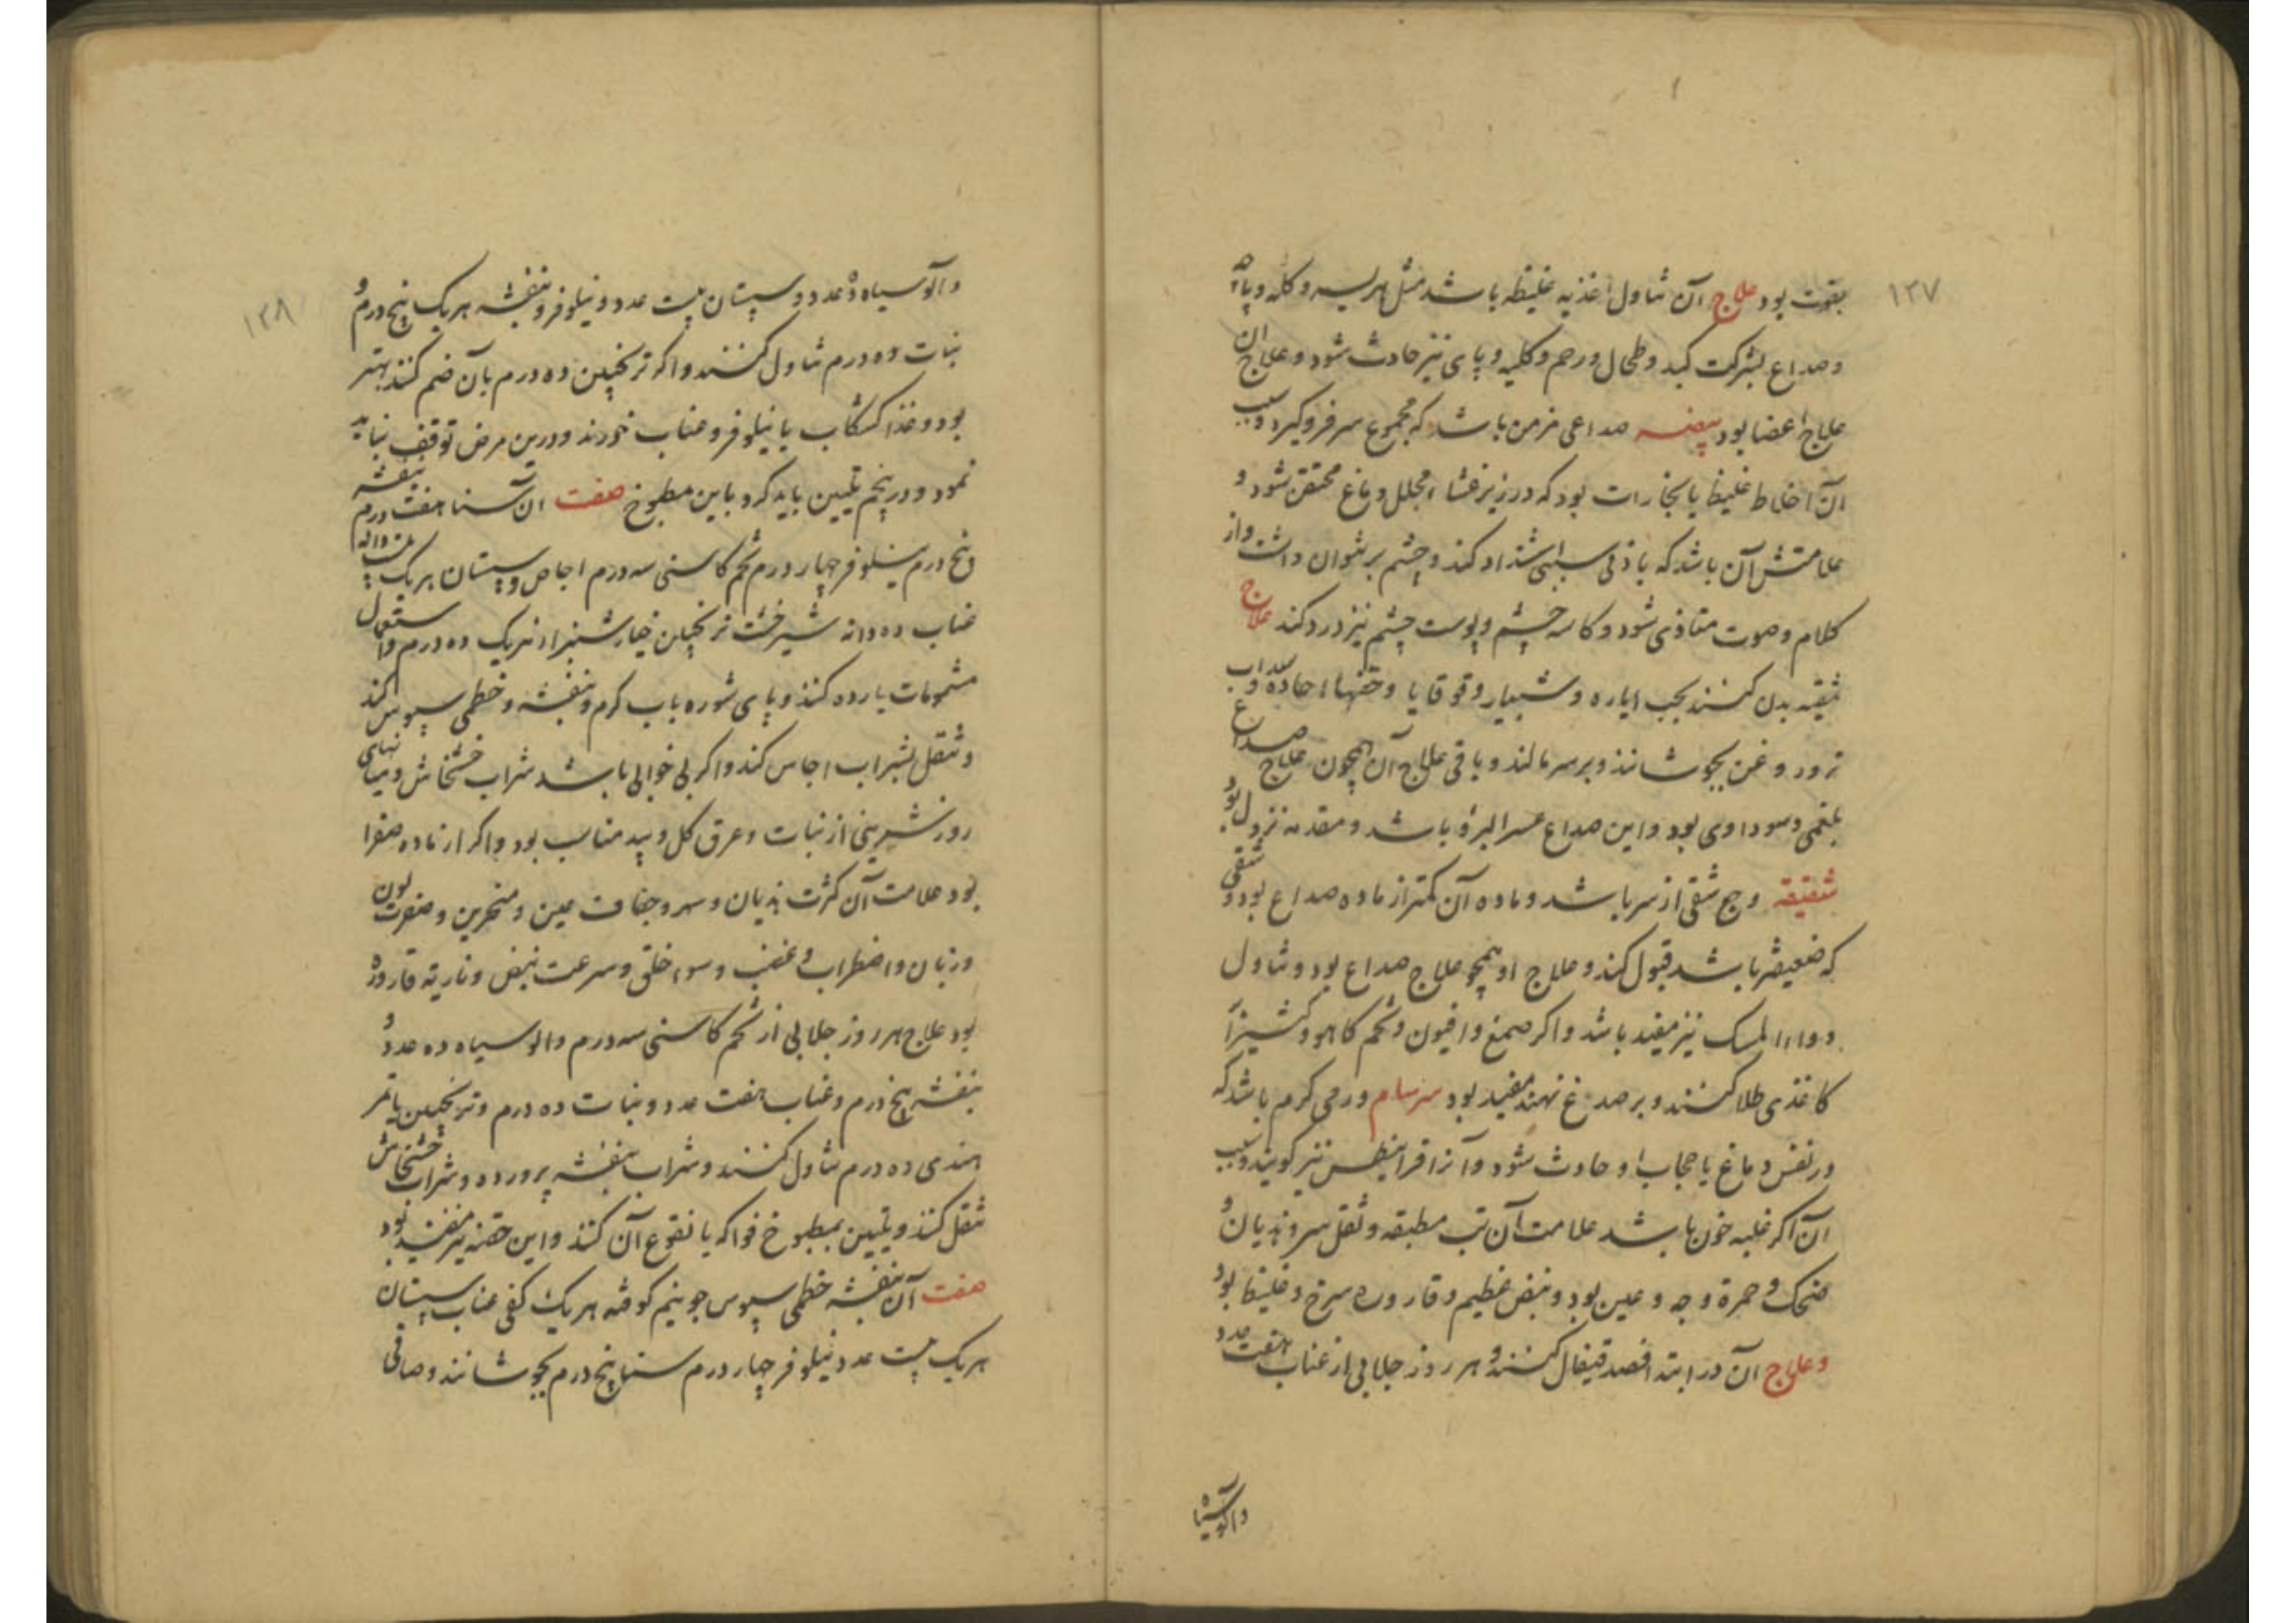 ۱۲۷
بقوت بود علاج آن تناول اغذیه غلیظه باشد مثل هریسه و کله و پاچه
و صداع بشرکت کبد و طحال و رحم و کلیه و پای نیز حادث شود و علاج ان
علاج اعضا بود بیضه صداعی مزمن باشد که مجموع سر فرو گیرد و سبب
آن اخلاط غلیظ یا بخارات بود که در زیر غشاء مجلل دماغ محتقن شود و
علامتش آن باشد که باذنی سببی اشتداد کند و چشم بر نتوان داشت و از
کلام و صوت متاذی شود و کاسه چشم و پوست چشم نیز درد کند علاج
تنقیه بدن کنند بحب ایاره و شبیار و قوقایا و حقنهاء حاده و سداب
در روغن بجوشانند و بر سر مالند و باقی علاج آن همچون علاج صداع
بلغمی و سوداوی بود و این صداع عسر البرؤ باشد و مقدمه نزول بود
شقیقه وجع شقی از سر باشد و ماده آن کمتر از ماده صداع بود و شقی
که ضعیفتر باشد قبول کند و علاج او همچو علاج صداع بود و تناول
دواء المسک نیز مفید باشد و اکر صمغ و افیون و تخم کاهو و کتیرا
کاغذی طلا کنند و بر صدغ نهند مفید بود سرسام ورمی کرم باشد که
در نفس دماغ یا حجاب او حادث شود و آنرا قرانیطس نیز کویند و سبب
آن اکر غلبه خون باشد علامت آن تب مطبقه و ثقل سر و هذیان و
ضحک و حمرة وجه و عین بود و نبض عظیم و قاروره سرخ و غلیظ بود
و علاج آن در ابتدا فصد قیفال کنند و هر روز جلابی از عناب هفت عدد
والوسیاه
۱۲۸
و آلو سیاه ده عدد و سپستان بیست عدد و نیلوفر و بنفشه هر یک پنج درم و
نبات ده درم تناول کنند و اکر ترنجبین ده درم بآن ضم کنند بهتر
بود و غذا کشکاب یا نیلوفر و عناب خورند و درین مرض توقف نباید
نمود و در پنجم تلیین باید کرد باین مطبوخ صفت ان سنا هفت درم بنفشه
پنج درم نیلوفر چهار درم تخم کاسنی سه درم اجاص و سپستان هر یک بیست دانه
عناب ده دانه شیرخشت ترنجبین خیارشنبر از هر یک ده درم و استعمال
مشمومات بارده کنند و پای شوره باب کرم و بنفشه و خطمی سبوس کنند
و تنقل بشراب اجاص کند و اکر بی خوابی باشد شراب خشخاش و میانهای
روز شربتی از نبات و عرق کل و بید مناسب بود و اکر از ماده صفرا
بود علامت آن کثرت هذیان و سهر و جفاف عین و منخرین و صفرت لون
و زبان و اضطراب و غضب و سوء خلق و سرعت نبض و ناریة قاروره
بود علاج هر روز جلابی از تخم کاسنی سه درم و الو سیاه ده عدد و
بنفشه پنج درم و عناب هفت عدد و نبات ده درم و ترنجبین یا تمر
هندی ده درم تناول کنند و شراب بنفشه پرورده و شراب خشخاش
تنقل کنند و تلیین بمطبوخ فواکه یا نقوع آن کنند و این حقنه نیز مفید بود
صفت آن بنفشه خطمی سبوس جو نیم کوفته هر یک کفی عناب سپستان
هر یک بیست عدد نیلوفر چهار درم سنا پنج درم بجوشانند و صافی